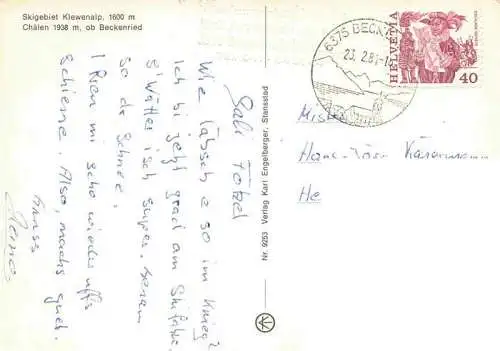 Skigebiet Klewenalp, 1600 m
Chälen 1938 m, ob Beckenried
Sali Fötzel
Wie läbsch e so im
Ich bi jetzt grad am Skifahre.
S'Wätter isch super. genau
so de Schnee.
I muess mi scho wieder uffs
Schiene. Also, machs guet.
Gruss
Nr. 9253 Verlag Karl Engelberger, Stansstad
6375 BECK
23. 2. 8
HELVETIA
40
Mister
Hans-Jörg
He